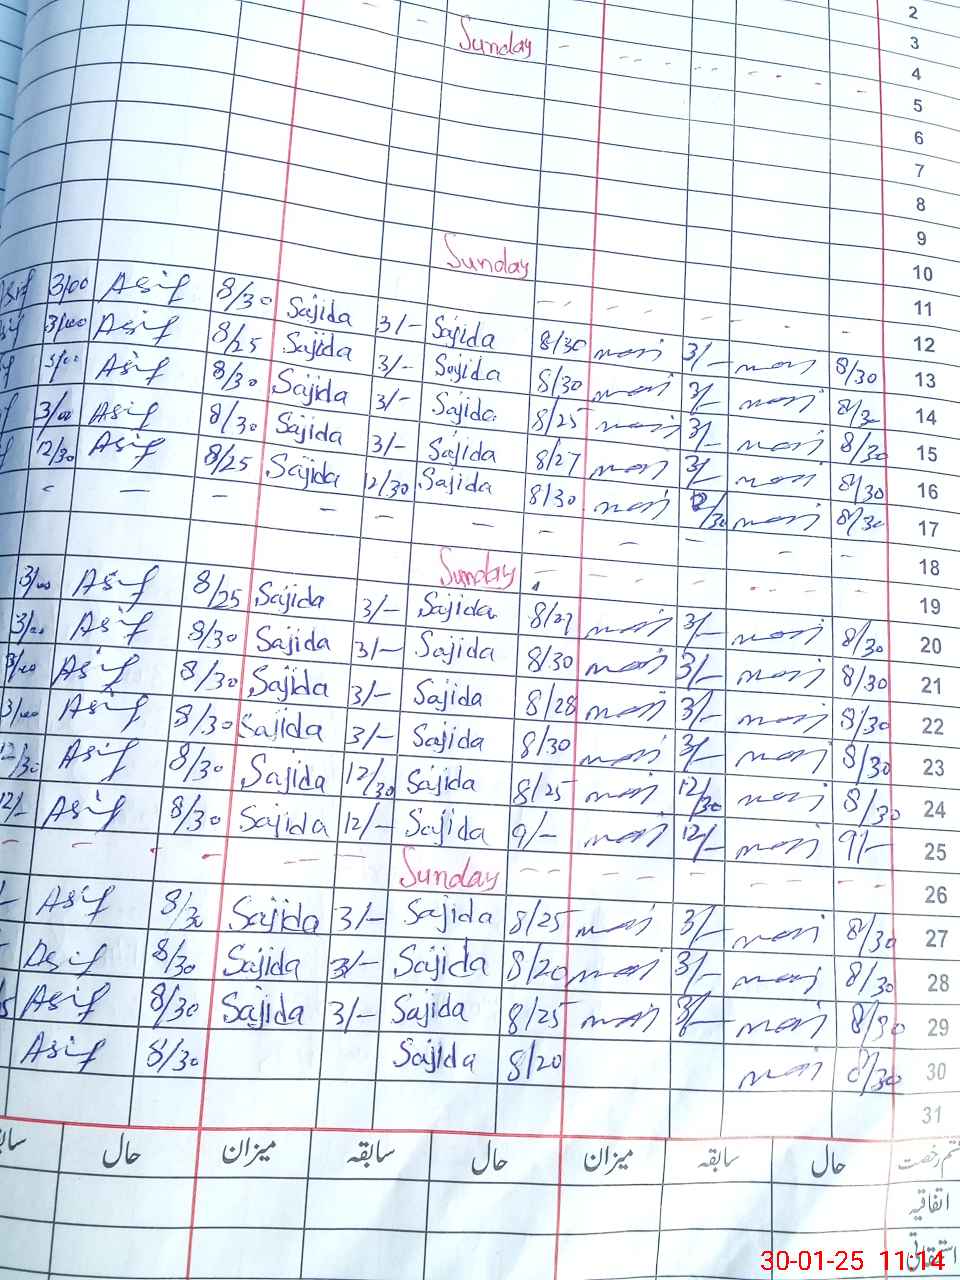 2
Sunday - 3
4
5
6
7
8
9
Sunday 10
11
3/00 Asif 8/30 Sajida 3/- Sajida 8/30 3/- 8/30 12
3/00 Asif 8/25 Sajida 3/- Sajida 8/30 3/- 8/30 13
3/00 Asif 8/30 Sajida 3/- Sajida 8/25 3/- 8/30 14
3/00 Asif 8/30 Sajida 3/- Sajida 8/27 3/- 8/30 15
12/30 Asif 8/25 Sajida 12/30 Sajida 8/30 8/30 16
17
18
Sunday 19
3/00 Asif 8/25 Sajida 3/- Sajida 8/27 3/- 8/30 20
3/00 Asif 8/30 Sajida 3/- Sajida 8/30 3/- 8/30 21
3/00 Asif 8/30 Sajida 3/- Sajida 8/28 3/- 8/30 22
3/00 Asif 8/30 Sajida 3/- Sajida 8/30 3/- 8/30 23
12/30 Asif 8/30 Sajida 12/30 Sajida 8/25 12/30 8/30 24
12/- Asif 8/30 Sajida 12/- Sajida 9/- 12/- 9/- 25
Sunday 26
Asif 8/30 Sajida 3/- Sajida 8/25 3/- 8/30 27
Asif 8/30 Sajida 3/- Sajida 8/20 3/- 8/30 28
Asif 8/30 Sajida 3/- Sajida 8/25 3/- 8/30 29
Asif 8/30 Sajida 8/20 8/30 30
31
رخصت حال سابقہ میزان حال سابقہ میزان حال
اتفاقیہ
30-01-25 11:14